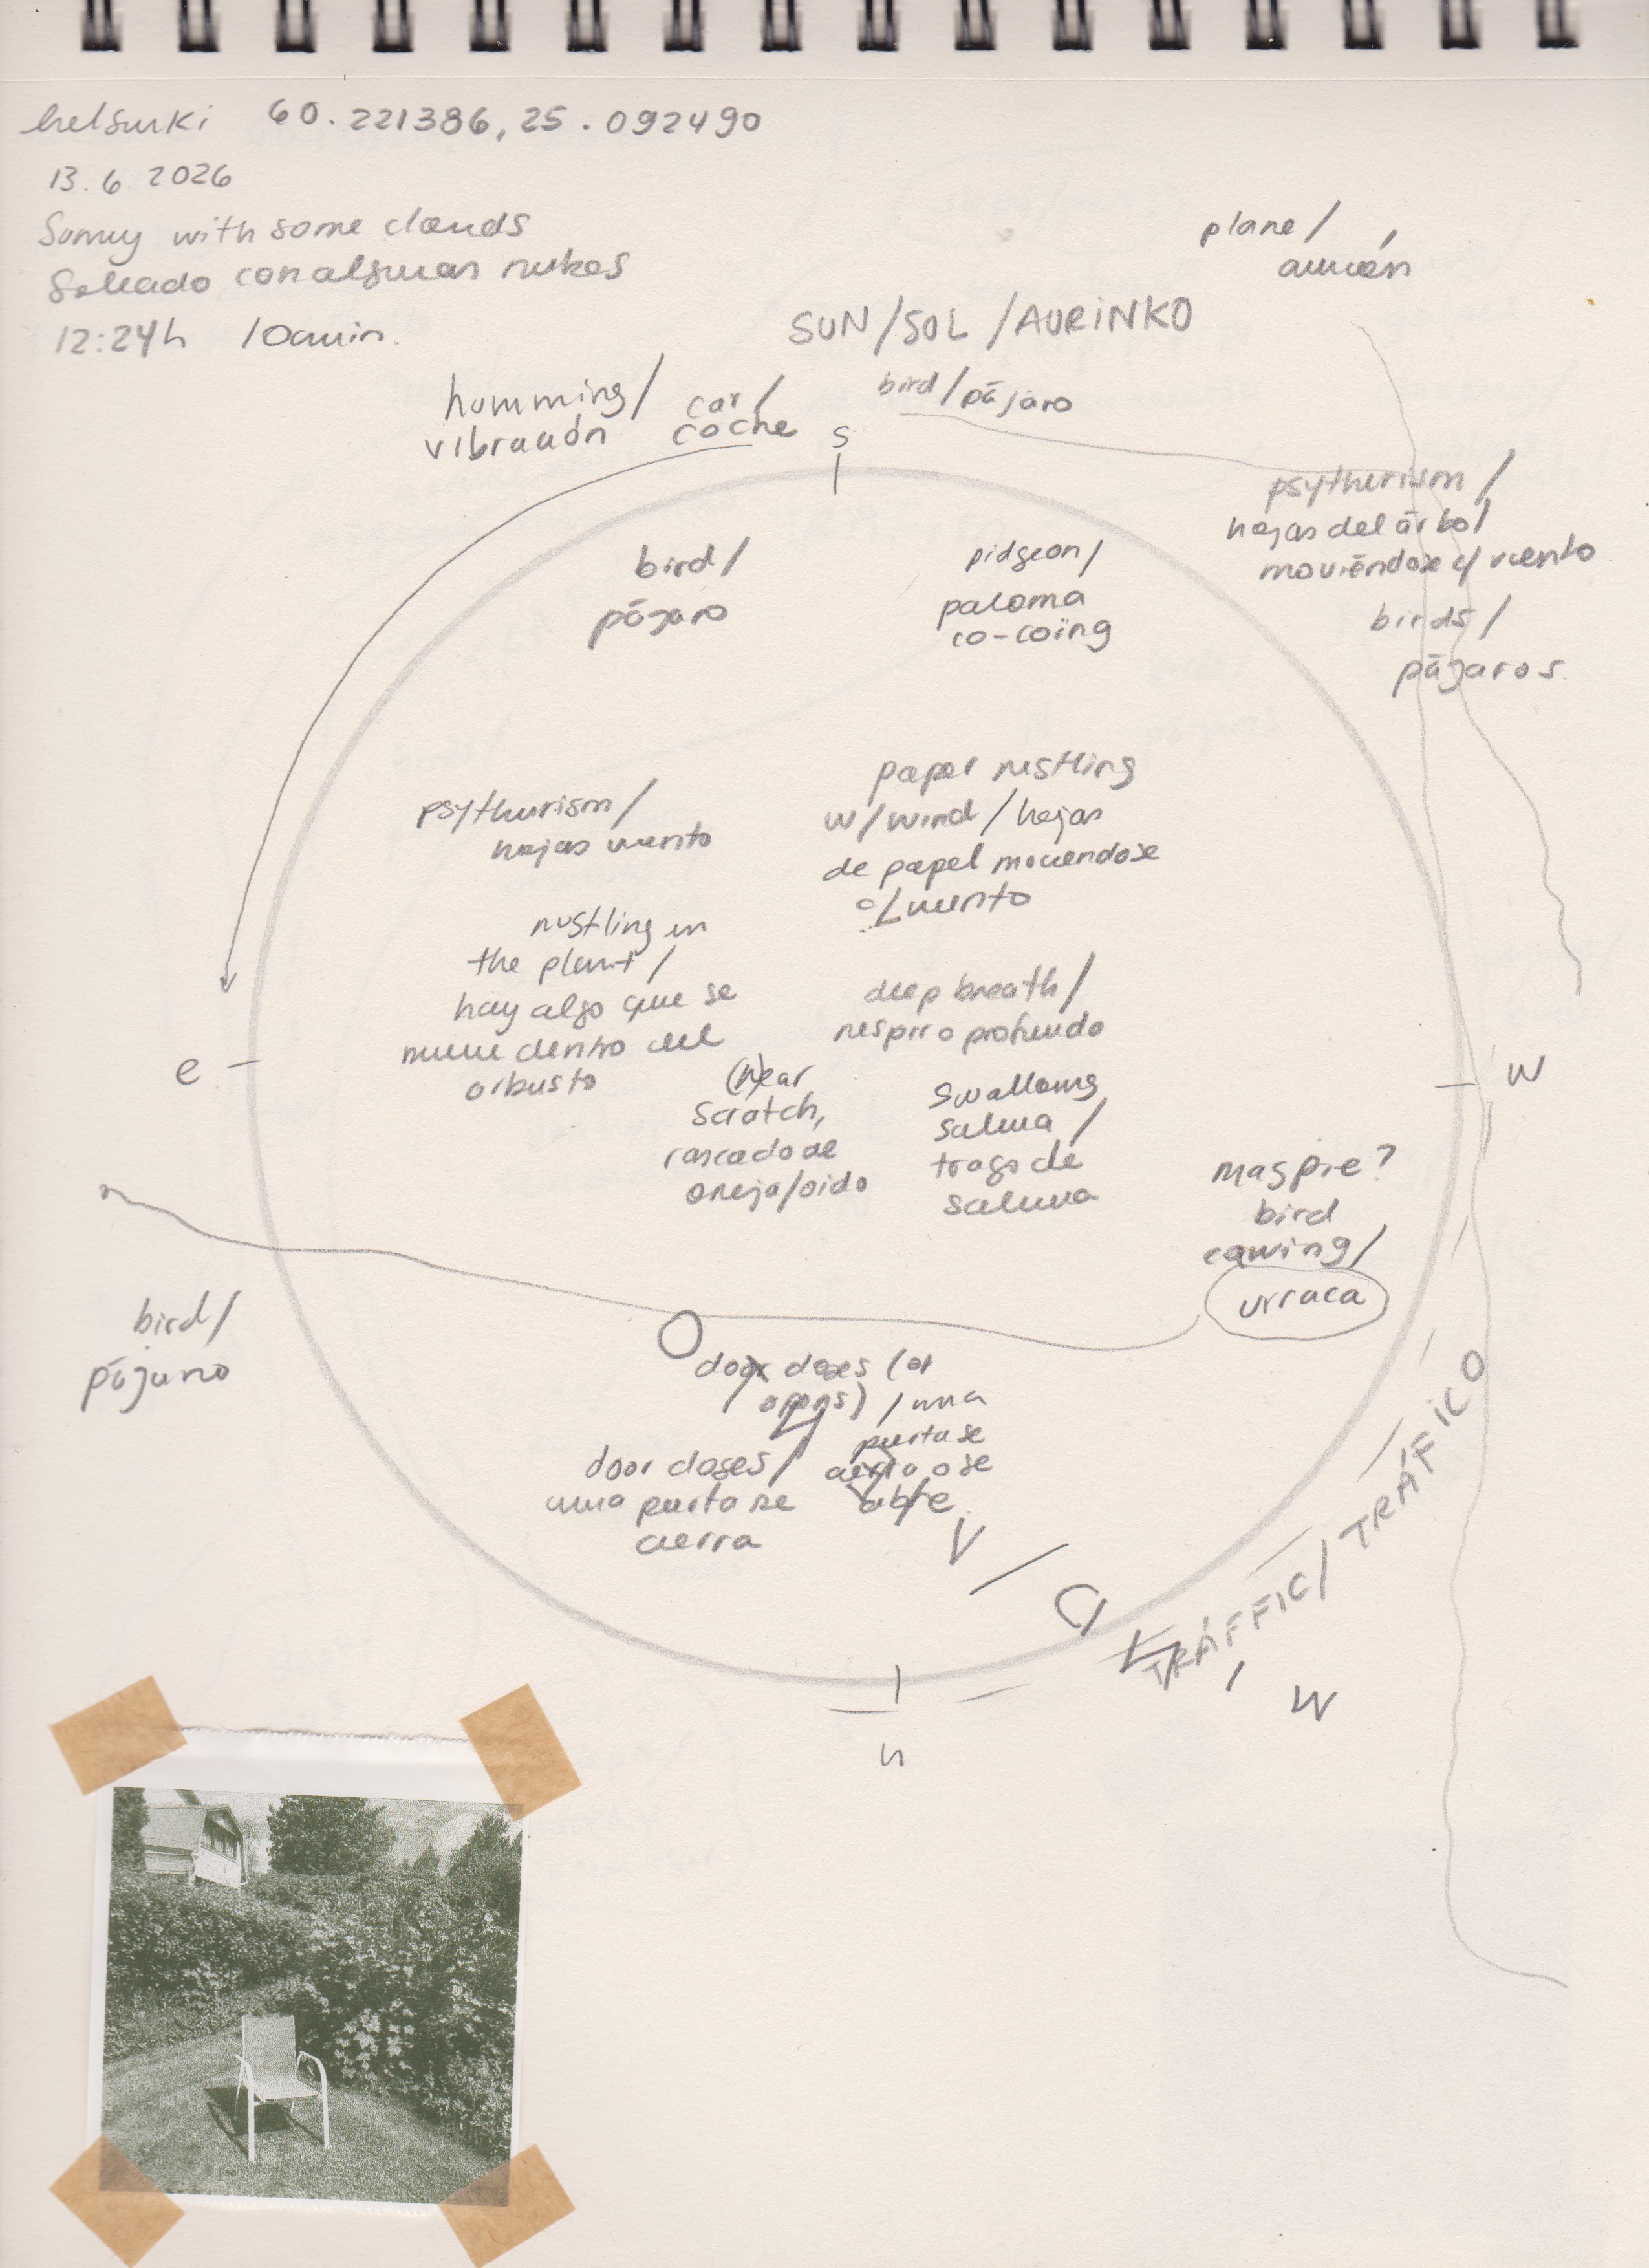 helsinki 60.221386, 25.092490
13.6.2026
Sunny with some clouds
Soleado con algunas nubes
12:24h 10min.
plane/
avión
SUN/SOL/AURINKO
bird/pájaro
humming/
vibración
car/
coche
s
psythurism/
hojas del árbol
moviéndose c/ viento
birds/
pájaros
bird/
pájaro
pidgeon/
paloma
co-coing
psythurism/
hojas viento
paper rustling
w/wind/hojas
de papel moviendose
c/viento
rustling in
the plant/
hay algo que se
mueve dentro del
arbusto
deep breath/
respiro profundo
e
w
(n)ear
scratch,
rascado de
oreja/oido
swallowing
saliva/
trago de
saliva
magpie?
bird
cawing/
urraca
bird/
pájaro
door closes (or
opens) / una
puerta se
cierra o se
abre
door closes/
una puerta se
cierra
TRÁFFIC/TRÁFICO
n